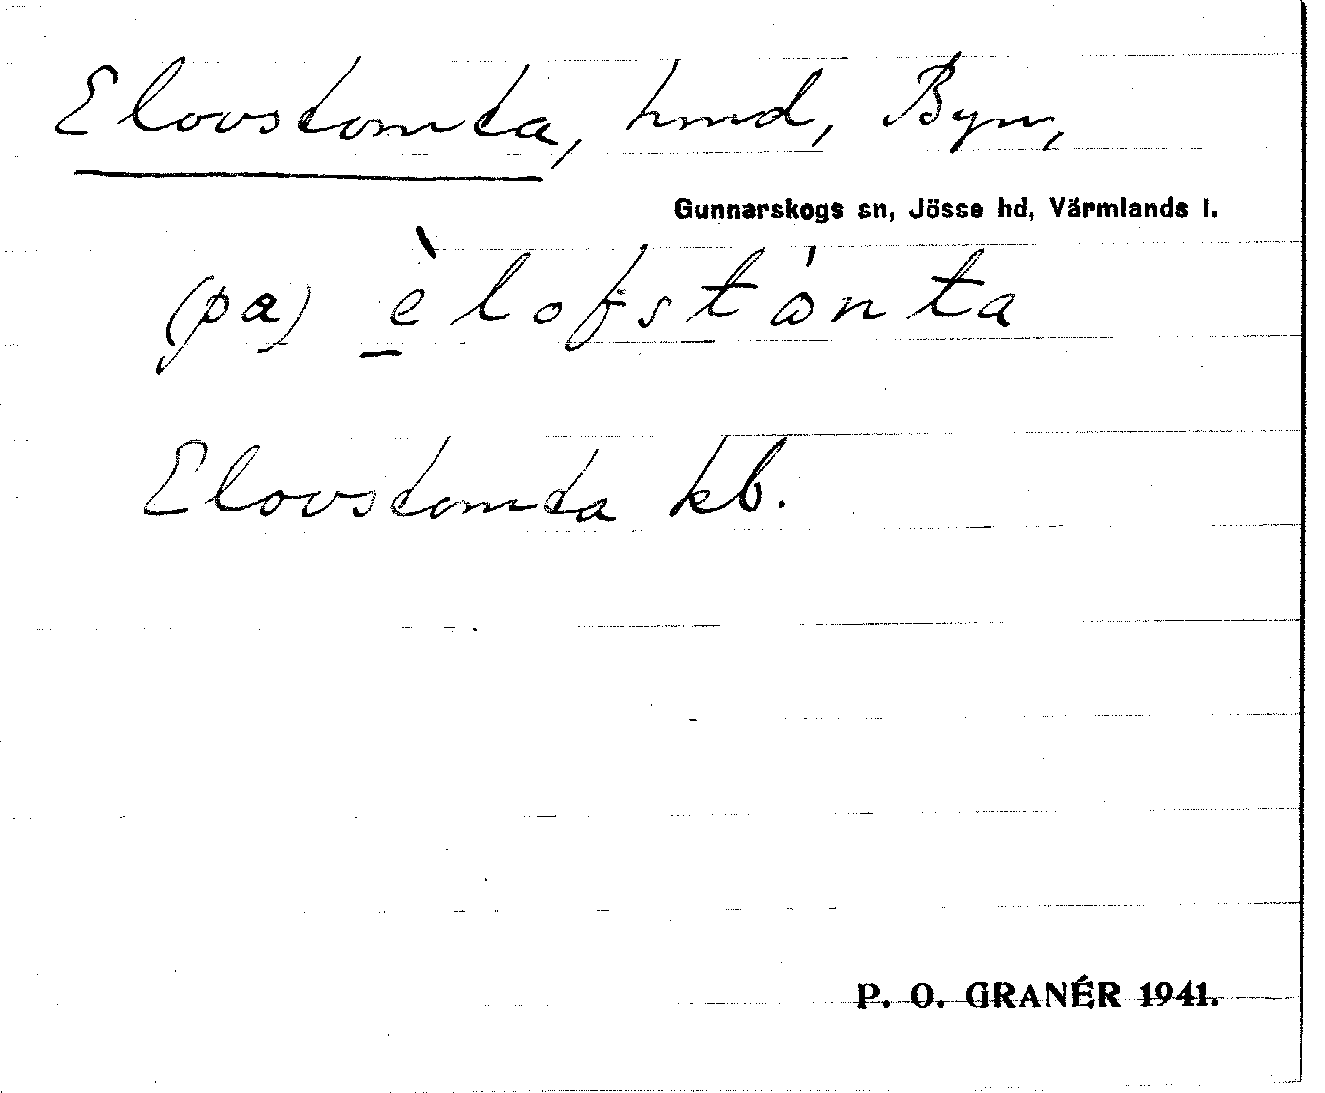 Elovstomta, hmd, Byn,
Gunnarskogs sn, Jösse hd, Värmlands l.
(pa) èlofstánta
Elovstomta kb.
P. O. GRANÉR 1941.